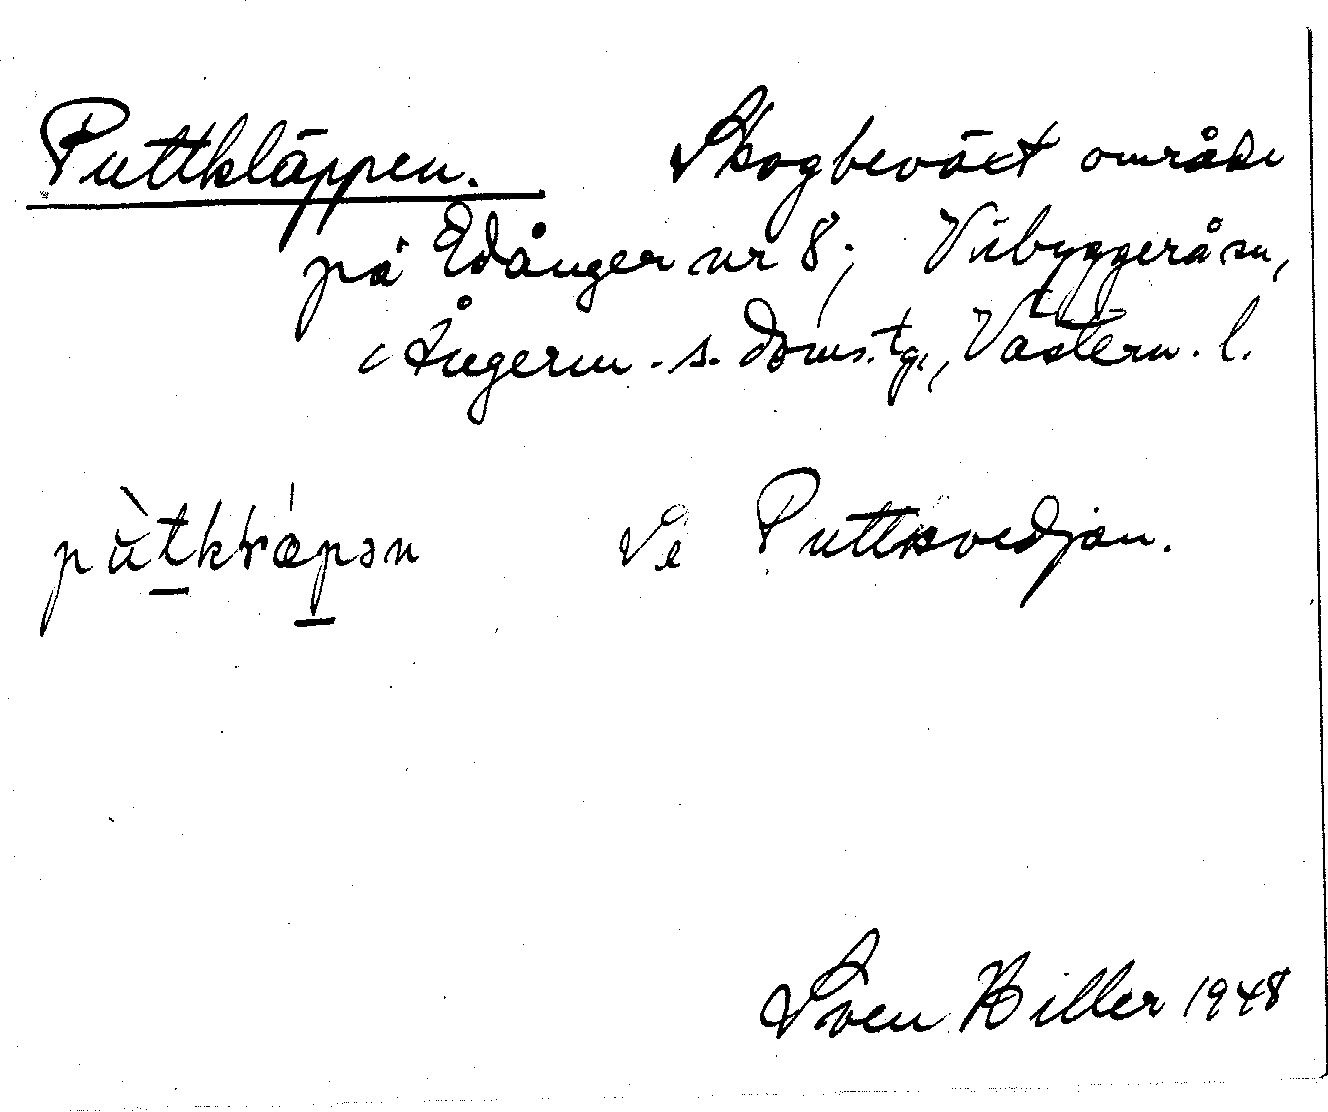 Puttkläppen. Skogbeväxt område
på Edånger nr 8; Vibyggerå sn,
Ångerm. s. doms.tg., Västern. l.
pùtkl̀æpən Se Puttsvedjan.
Sven Hiller 1948